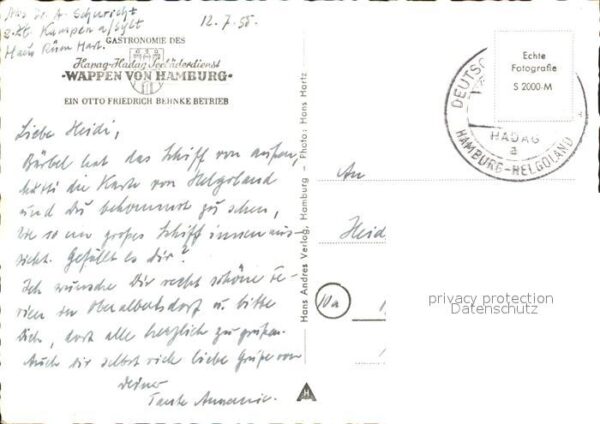 Abs. Dr. A. Schuricht
z.Zt. Kampen a/Sylt
Haus Rüm Hart.
12.7.58.
GASTRONOMIE DES
Hapag-Hadag Seebäderdienst
-WAPPEN VON HAMBURG-
EIN OTTO FRIEDRICH BEHNKE BETRIEB
Liebe Heidi,
Bärbel hat das Schiff von außen
die Karte von Helgoland
und du bekommst zu sehen,
wie so ein großes Schiff innen aus-
sieht. Gefällt es dir?
Ich wünsche Dir recht schöne Fe-
rien in Oberalbertsdorf u. bitte
dich, dort alle herzlich zu grüßen.
Auch dir selbst viele liebe Grüße von
deiner
Tante Annemie.
Hans Andres Verlag, Hamburg - Photo: Hans Hartz
Echte
Fotografie
S 2000-M
DEUTSC
HADAG
a
HAMBURG-HELGOLAND
An
Heid
10a
privacy protection
Datenschutz